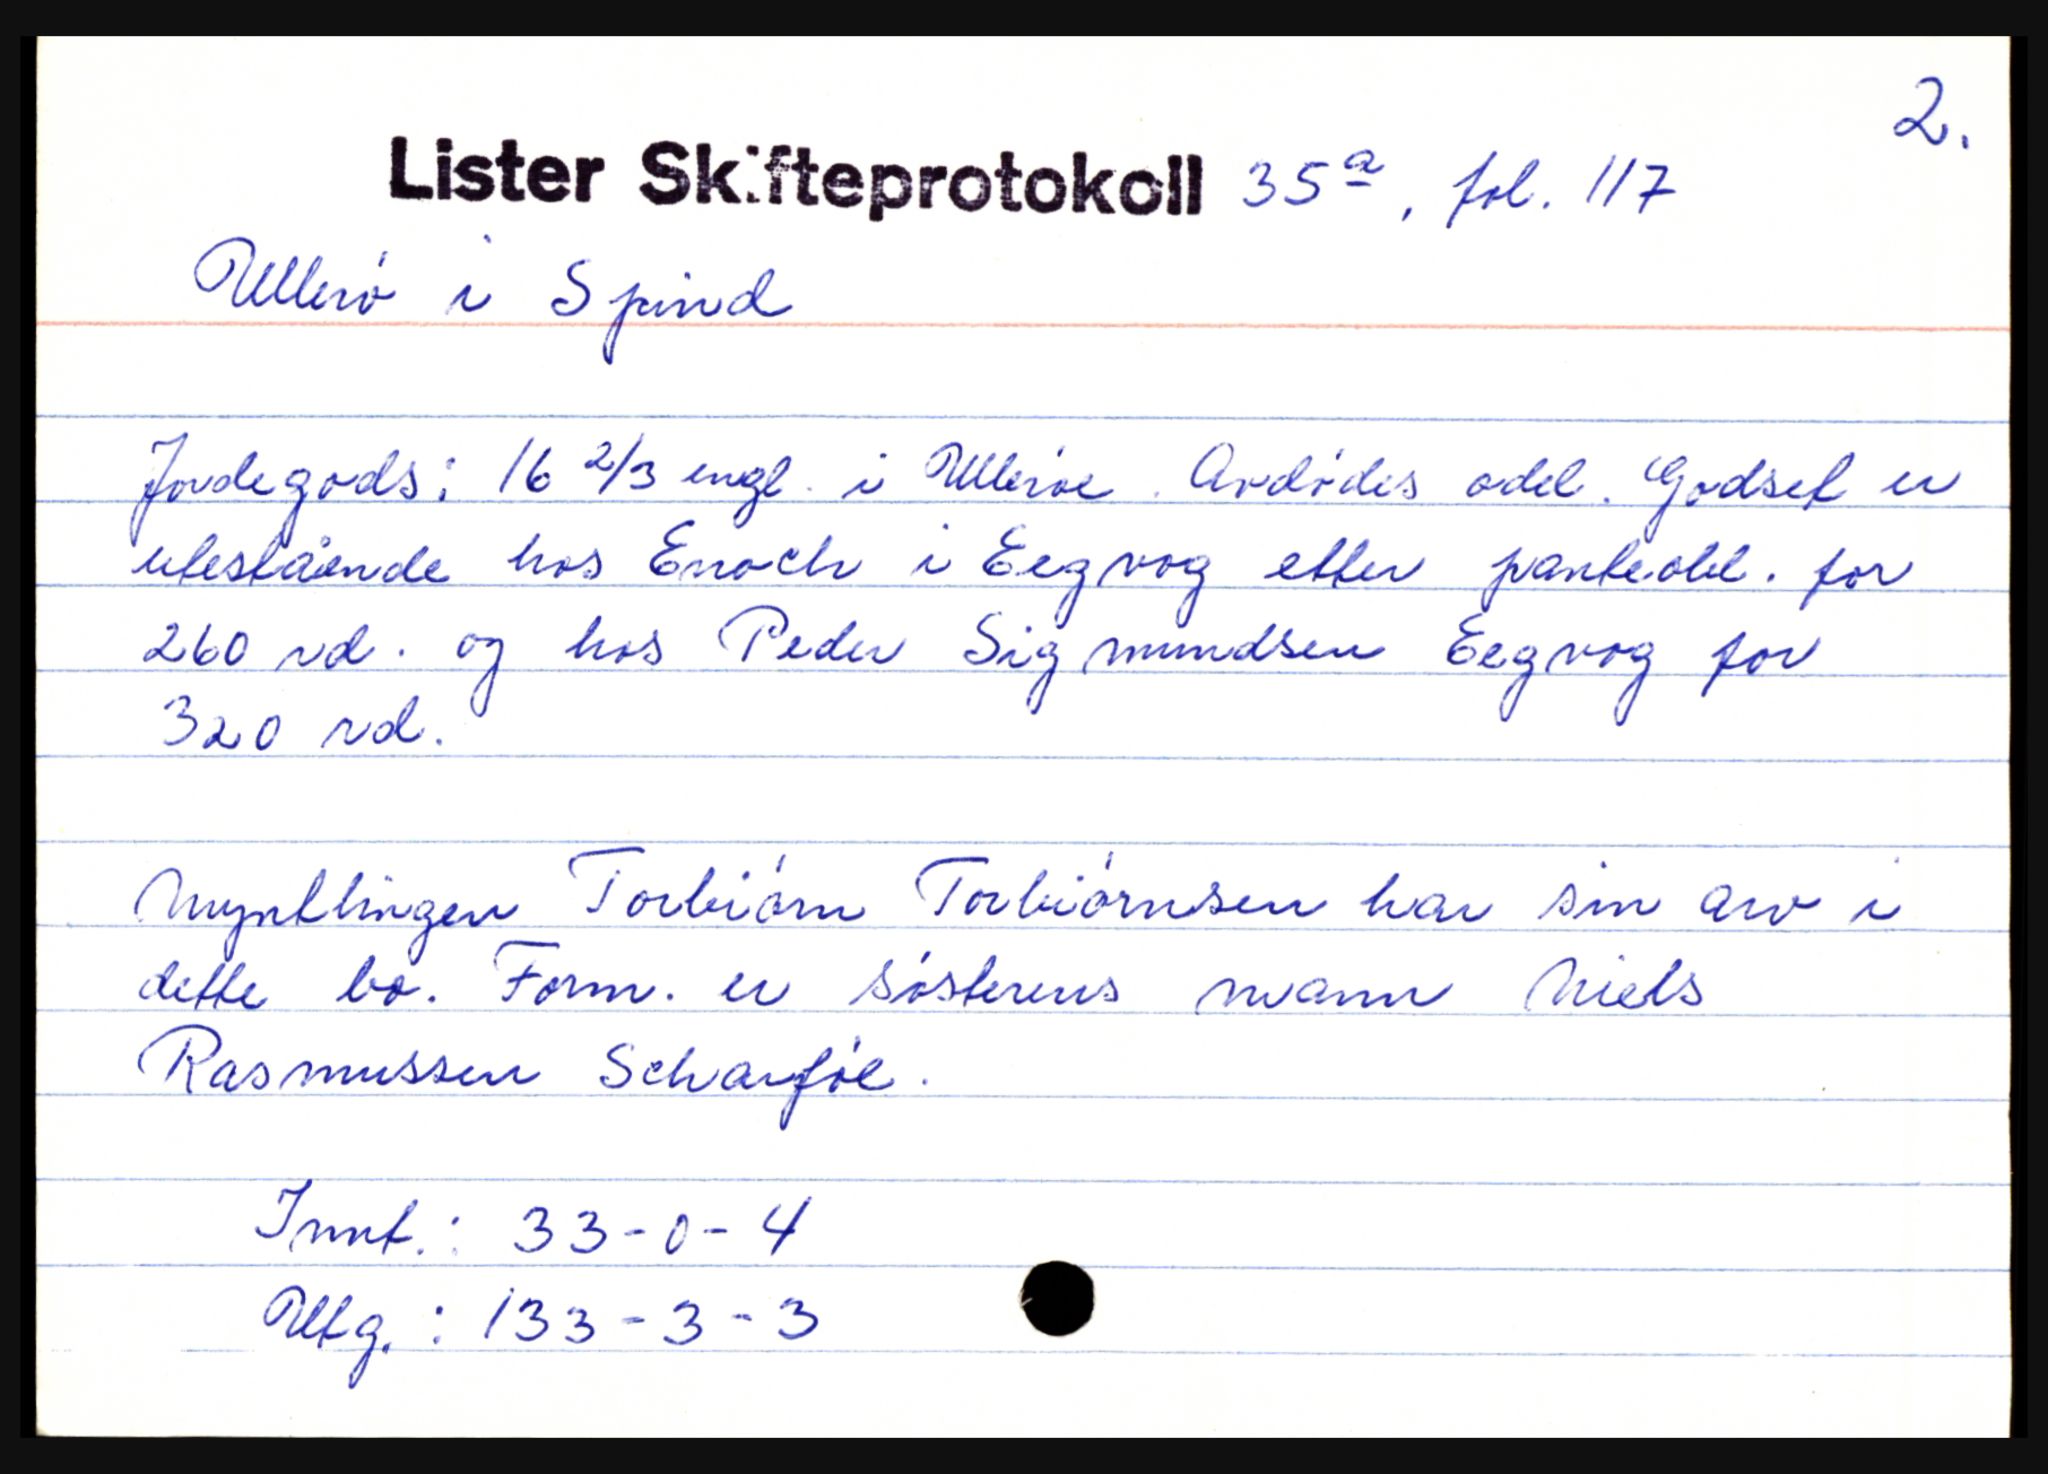 2.
Lister Skifteprotokoll 35a, fol. 117
Ullerö i Spind
Jordegods: 16 2/3 engl. i Ulleröe. Avdödes odel. Godset er
utestående hos Enoch i Eegvog etter panteobl. for
260 rd. og hos Peder Sigmundsen Eegvog for
320 rd.
Myntlingen Torbiörn Torbiörnsen har sin arv i
dette bo. Form. er sösterens mann Niels
Rasmussen Scharföe.
Innt.: 33-0-4
Utg.: 133-3-3